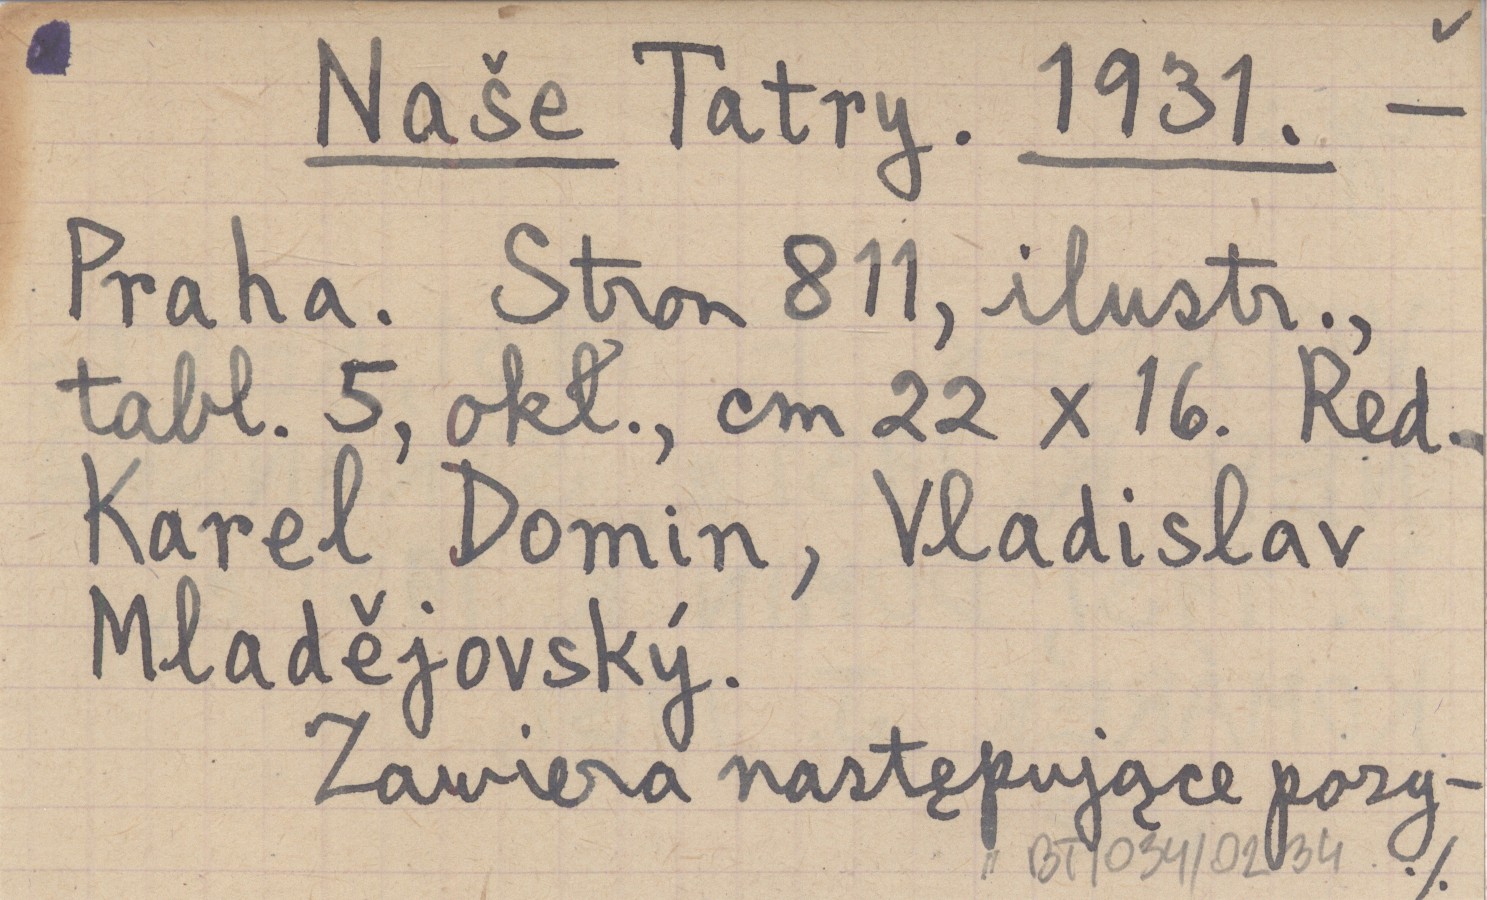 Naše Tatry. 1931. —
Praha. Stron 811, ilustr.,
tabl. 5, okł., cm 22 x 16. Red.
Karel Domin, Vladislav
Mladějovský.
Zawiera następujące pozy-
BT/034/02 34 ./.